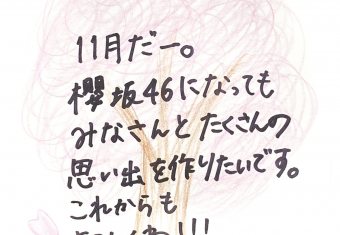 11月だー。
櫻坂46になっても
みなさんとたくさんの
思い出を作りたいです。
これからも